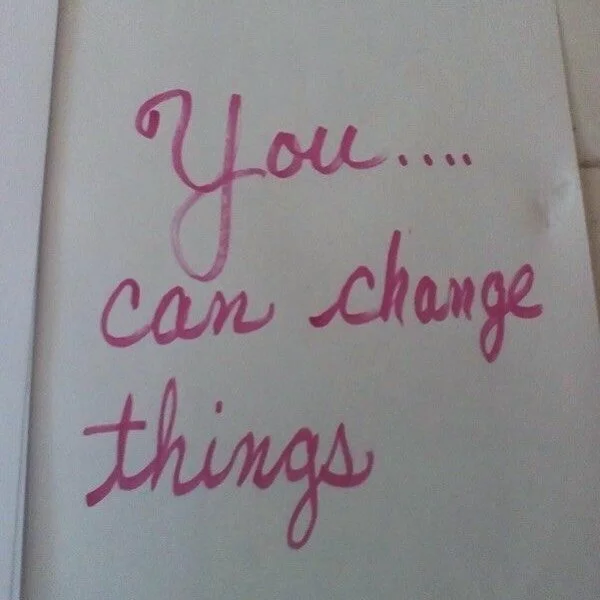 You....
can change
things